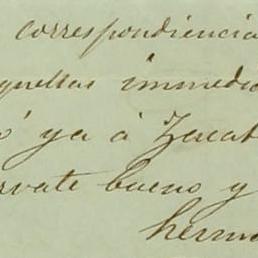 correspondiencia
quellas immedi
ó ya à Zacat
rvate bueno y
herm